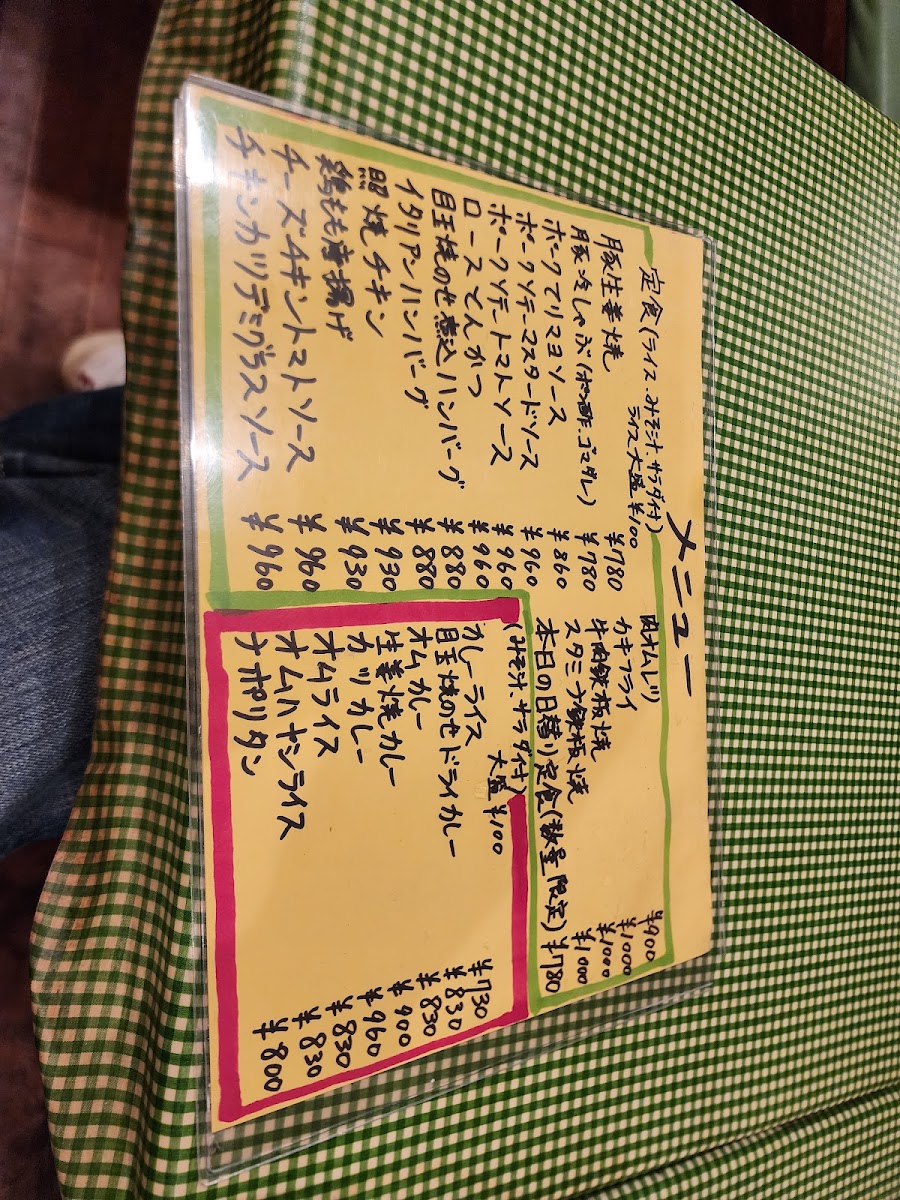 メニュー
定食(ライス、みそ汁、サラダ付)
ライス大盛 ¥100
豚生姜焼 ¥780
豚冷しゃぶ(ポン酢、ゴマダレ) ¥780
ポークてりマヨソース ¥860
ポークソテーマスタードソース ¥960
ポークソテートマトソース ¥960
ロースとんかつ ¥960
目玉焼のせ煮込ハンバーグ ¥880
イタリアンハンバーグ ¥880
照焼チキン ¥930
鶏もも唐揚げ ¥930
チーズチキントマトソース ¥960
チキンカツデミグラスソース ¥960
肉オムレツ ¥900
カキフライ ¥1000
牛肉鉄板焼 ¥1000
スタミナ鉄板焼 ¥1000
本日の日替り定食(数量限定) ¥780
(みそ汁、サラダ付)
大盛 ¥100
カレーライス ¥730
目玉焼のせドライカレー ¥830
オムカレー ¥830
生姜焼カレー ¥900
カツカレー ¥960
オムライス ¥830
オムハヤシライス ¥830
ナポリタン ¥800